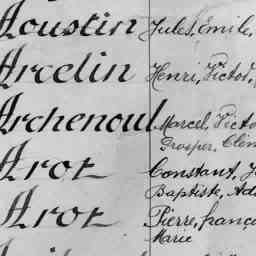 Aoustin Jules, Emile,
Arcelin Henri, Victor,
Archenoul Marcel, Victo
Prosper, Clém
Arot Constant, J
Baptiste, Ad
Arot Pierre, franço
Marie